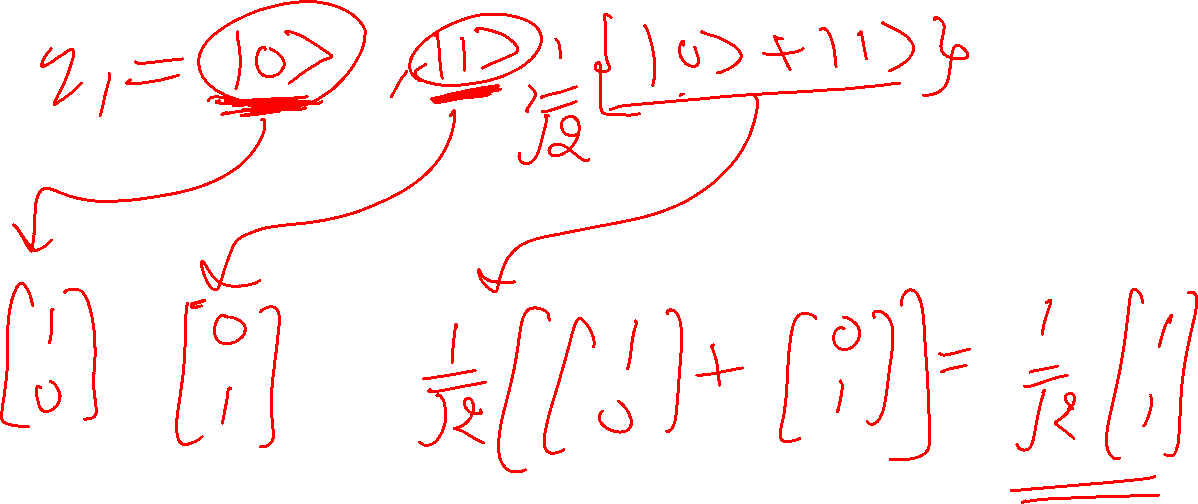 η₁ = |0⟩ , |1⟩ , 1/√2 { |0⟩ + |1⟩ }
[1 0] [0 1] 1/√2 [ [1 0] + [0 1] ] = 1/√2 [1 1]